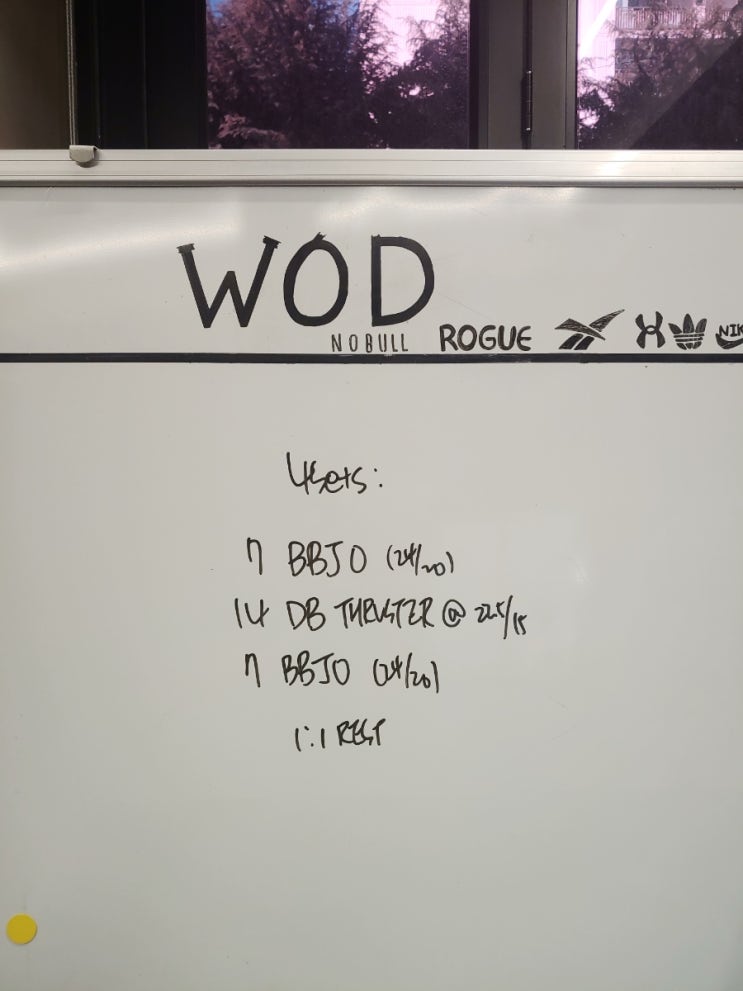 WOD
NOBULL ROGUE NIK
4sets:
7 BBJO (24/20)
14 DB THRUSTER @ 22.5/15
7 BBJO (24/20)
1:1 REST